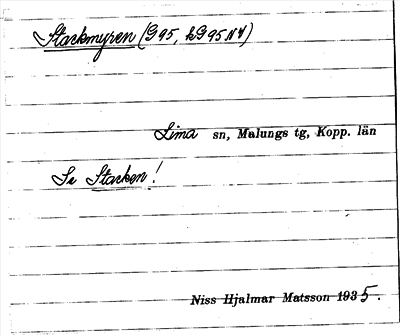 Starkmyren (G95, kG95NV)
Lima sn, Malungs tg, Kopp. län
Se Starken!
Niss Hjalmar Matsson 1935.